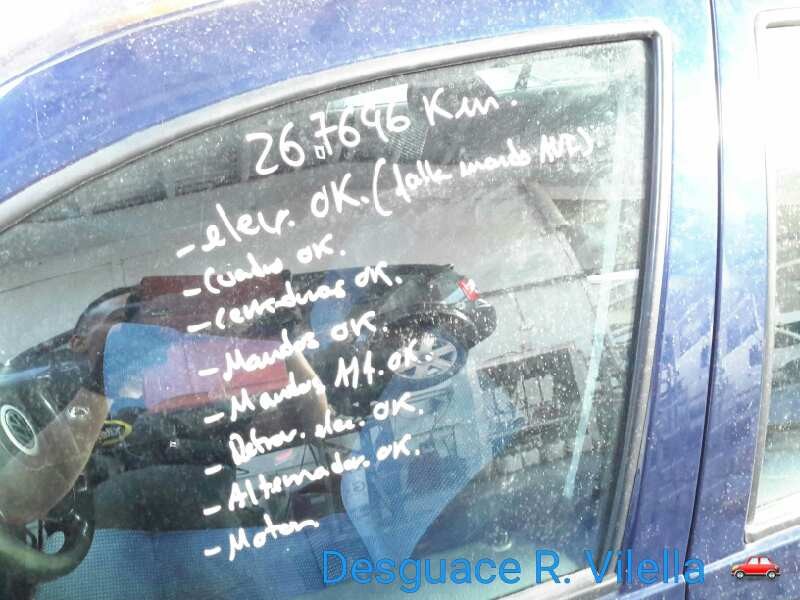 267646 Km.
- elev. OK. (falla mando
- Cuadro OK.
- Cerraduras OK.
- Mandos OK.
- Mandos A/A. OK.
- Retrov. elec. OK.
- Alternador. OK.
- Motor.
Desguace R. Vilella